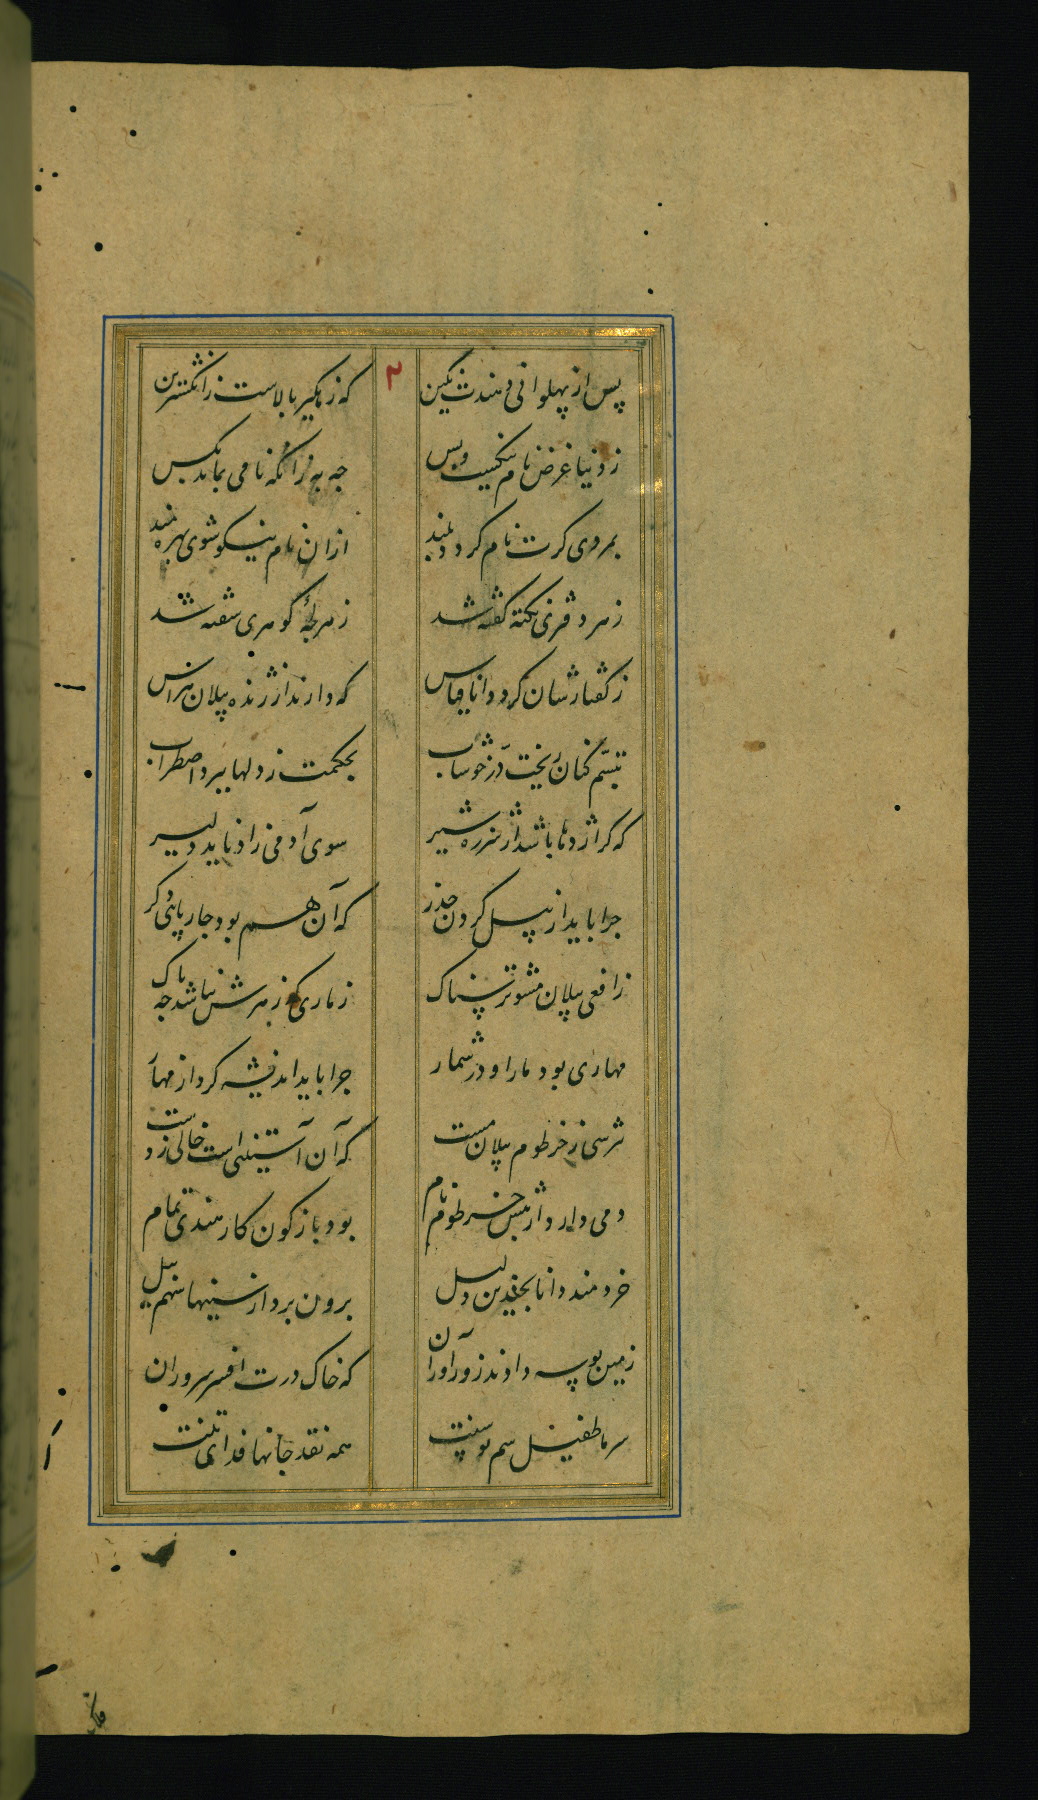 پس از پهلوانی دهندت نگین
که زهگیر بالاست ز انگشترین
ز دنیا غرض نام نیکست و بس
چه به زانکه نامی بماند بکس
بمردی کرت نام کردد بلند
ازان نام نیکو شوی بهره‌مند
ز هر در قری نکته کفته شد
ز هر لجهٔ کوهری سفته شد
ز کفتارشان کرد دانا قیاس
که دارند از ژنده پیلان هراس
تبسّم کنان ریخت درّ خوشاب
بحکمت ز دلها ببرد اضطراب
که کر اژدها باشد ار شرزه شیر
سوی آدمی‌زاد ناید دلیر
چرا باید از پیل کردن حذر
که آن هم بود چارپائی دکر
ز افعی پیلان مشو ترسناک
ز ماری که زهرش نباشد چه باک
مهاری بود مار او در شمار
چرا باید اندیشه کرد از مهار
نترسی ز خرطوم پیلان مست
که آن آستینی است خالی ز دست
دمی دارد از پیش خرطوم نام
بود باژکون کار هندی تمام
خردمند دانا بچندین دلیل
برون برد از سینها سهم پیل
زمین بوسه دادند زورآوران
که خاک درت افسر سروران
سر ما طفیل سم توسنت
همه نقد جانها فدای تنت